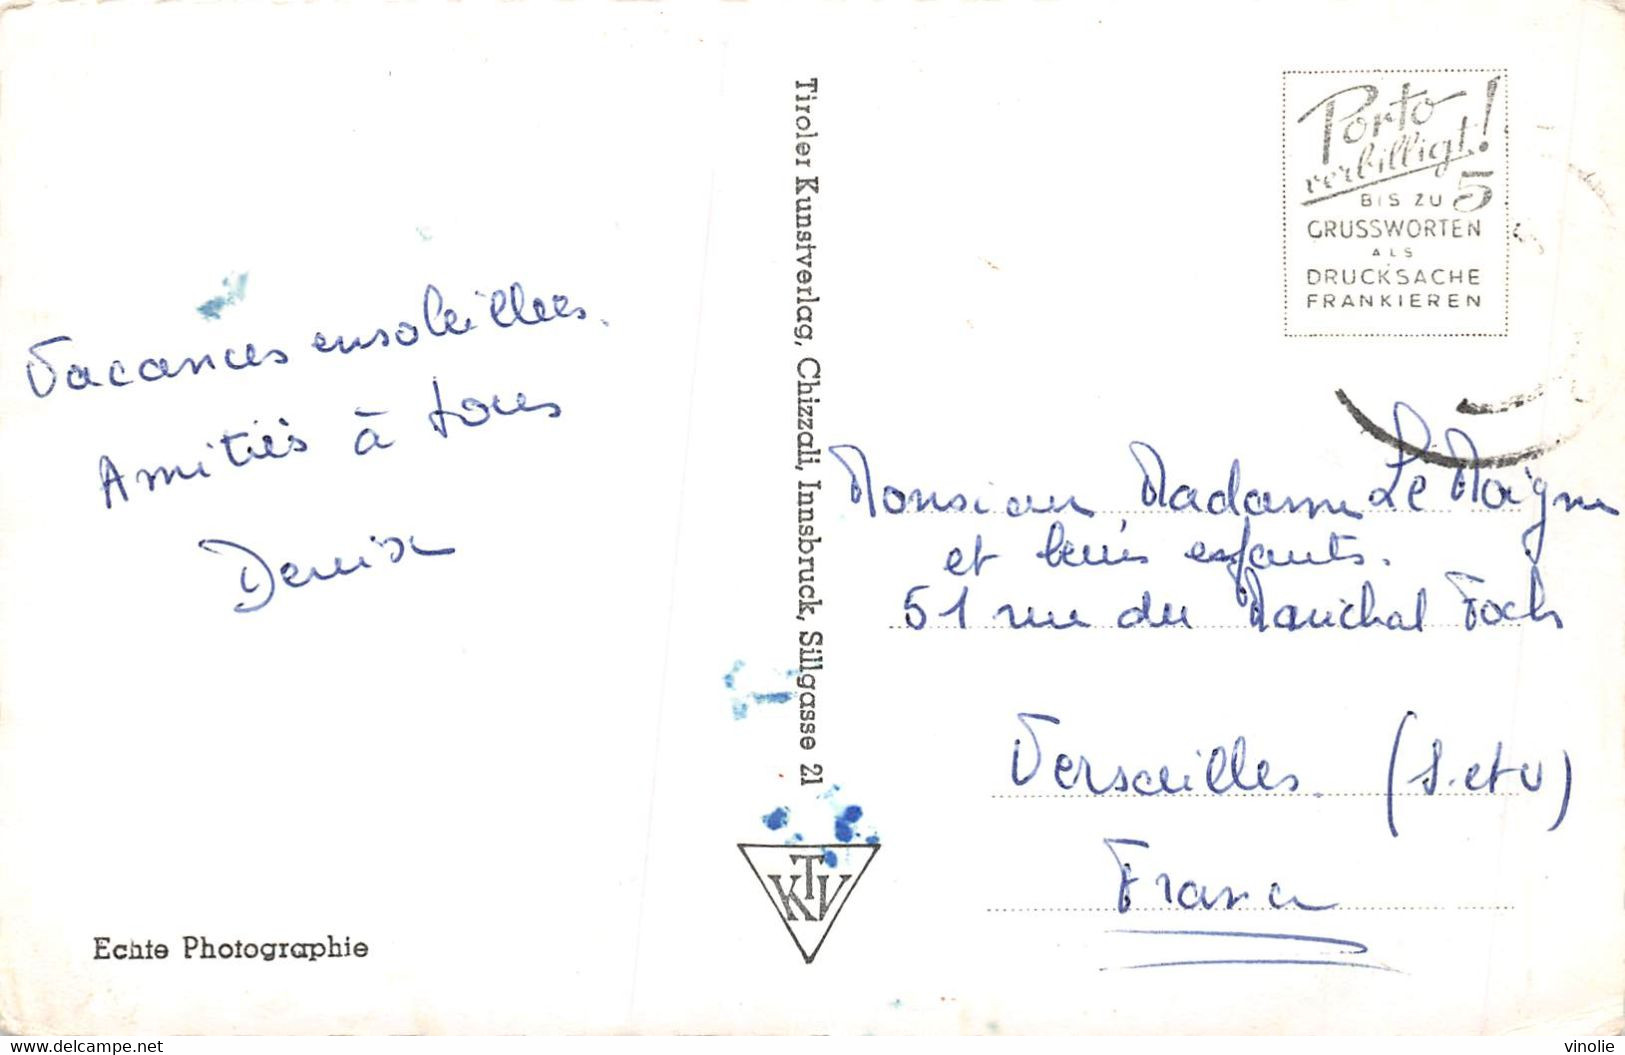 Vacances ensoleillées.
Amitiés à tous
Denise
Echte Photographie
Tiroler Kunstverlag, Chizzali, Innsbruck, Sillgasse 21
KTV
Porto
verbilligt!
BIS ZU 5
GRUSSWORTEN
ALS
DRUCKSACHE
FRANKIEREN
Monsieur, Madame Le Moigne
et leurs enfants.
51 rue du Maréchal Foch
Versailles. (S. et O)
France
delcampe.net
vinolie